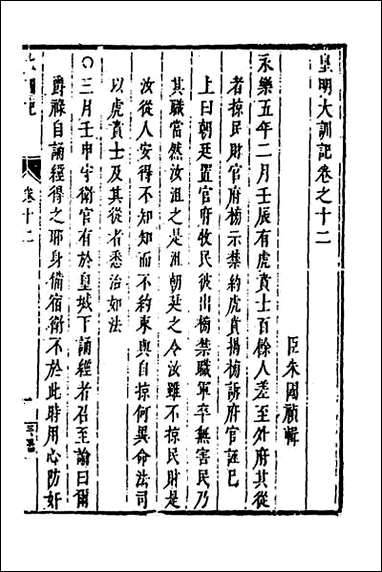 皇明大訓記卷之十二
臣朱國禎輯
永樂五年二月壬辰有虎賁士百餘人差至外府其從
者掠民財官府榜示禁約虎賁揭榜訴府官誣已
上曰朝廷置官府牧民彼出榜禁職軍卒無害民乃
其職當然汝沮之是沮朝廷之令汝雖不掠民財是
汝從人安得不知知而不約束與自掠何異命法司
以虎賁士及其從者悉治如法
○三月壬申守衛官有於皇城下誦經者召至諭曰爾
爵祿自誦經得之耶身備宿衛不於此時用心防奸
大訓記
卷十二
一